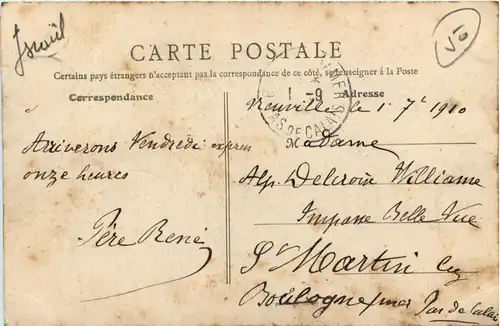 Israël
V6
CARTE POSTALE
Certains pays étrangers n'acceptant pas la correspondance de ce côté, se renseigner à la Poste
Correspondance
Adresse
1-9
PAS DE CALAIS
Neuville le 1 7re 1910
Arriverons Vendredi express
onze heures
Père René
Madame
Alp. Delcroix Williame
Impasse Belle Vue
St Martin lez
Boulogne s/mer Pas de Calais